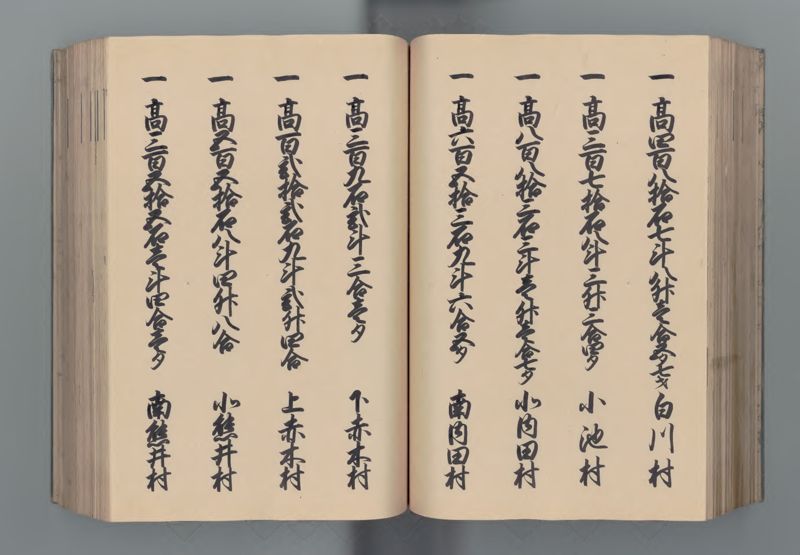 一 高四百八拾石七斗八升壱合五夕七才 白川村
一 高三百七拾石八斗三升二合四夕 小池村
一 高八百八拾三石三斗壱升壱合七夕 北内田村
一 高六百五拾三石九斗六合五夕 南内田村
一 高三百九石弐斗三合壱夕 下赤木村
一 高百弐拾弐石九斗弐升四合 上赤木村
一 高五百五拾石八斗四升八合 北熊井村
一 高三百五拾五石壱斗四合壱夕 南熊井村